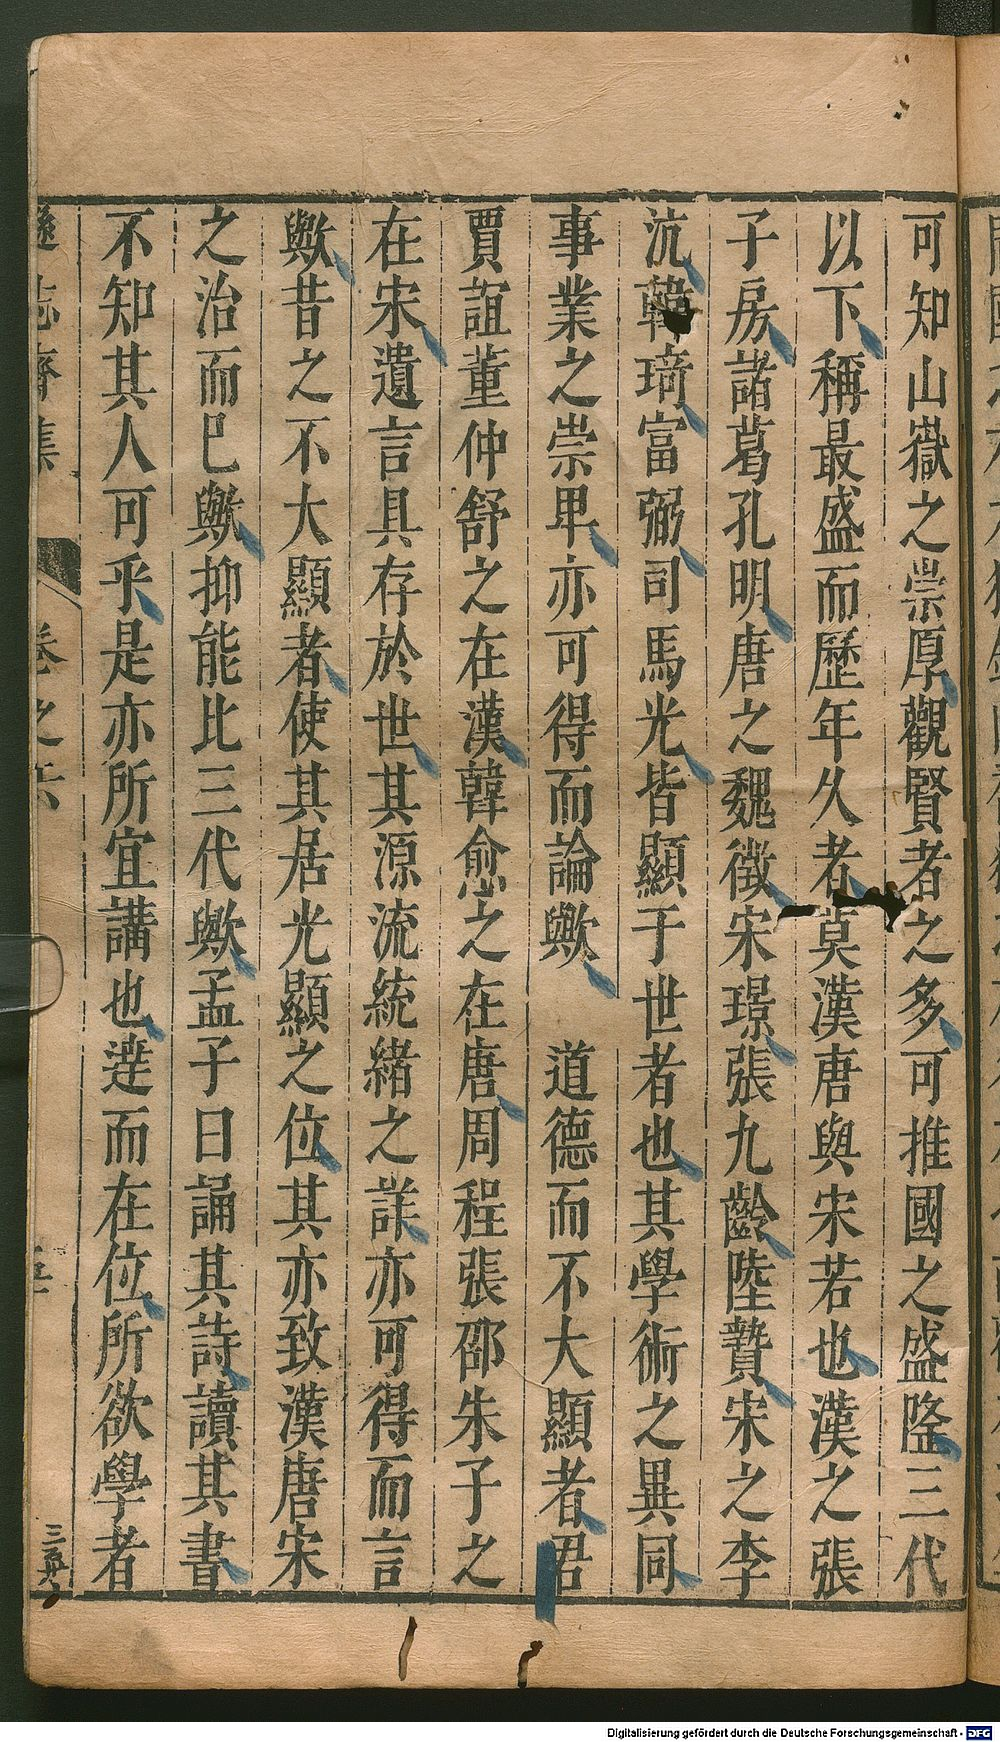 可知山嶽之崇厚觀賢者之多可推國之盛隆三代
以下稱最盛而歷年久者莫漢唐與宋若也漢之張
子房諸葛孔明唐之魏徵宋璟張九齡陸贄宋之李
沆韓琦富弼司馬光皆顯于世者也其學術之異同
事業之崇卑亦可得而論歟 道德而不大顯者君
賈誼董仲舒之在漢韓愈之在唐周程張邵朱子之
在宋遺言具存於世其源流統緒之詳亦可得而言
歟昔之不大顯者使其居光顯之位其亦致漢唐宋
之治而巳歟抑能比三代歟孟子曰誦其詩讀其書
不知其人可乎是亦所宜講也達而在位所欲學者
遜志齋集 卷之六 五
Digitalisierung gefördert durch die Deutsche Forschungsgemeinschaft - DFG